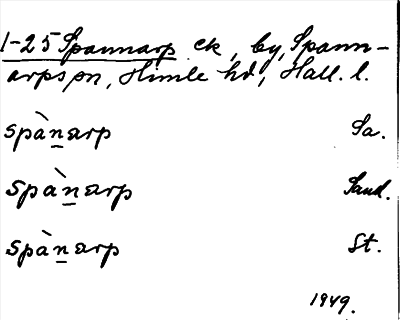 1-25 Spannarp ek, by, Spann-
arps sn, Himle hd, Hall. l.
spànarp Sa.
spànarp Sand.
spànarp St.
1949.